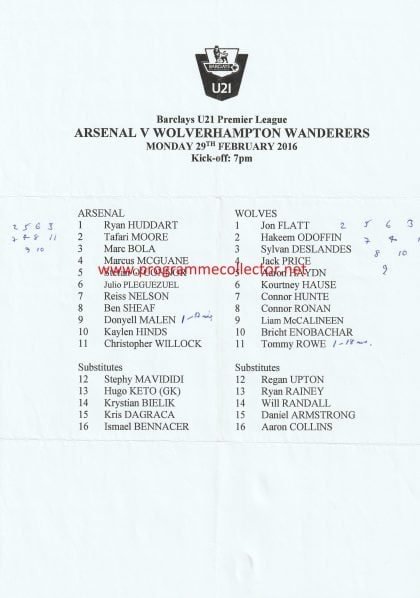 BARCLAYS
U21
Barclays U21 Premier League
ARSENAL V WOLVERHAMPTON WANDERERS
MONDAY 29TH FEBRUARY 2016
Kick-off: 7pm
ARSENAL
1 Ryan HUDDART
2 Tafari MOORE
3 Marc BOLA
4 Marcus MCGUANE
5 Stefan O'CONNOR
6 Julio PLEGUEZUEL
7 Reiss NELSON
8 Ben SHEAF
9 Donyell MALEN
10 Kaylen HINDS
11 Christopher WILLOCK
Substitutes
12 Stephy MAVIDIDI
13 Hugo KETO (GK)
14 Krystian BIELIK
15 Kris DAGRACA
16 Ismael BENNACER
2 5 6 3
7 4 8 11
9 10
WOLVES
1 Jon FLATT
2 Hakeem ODOFFIN
3 Sylvan DESLANDES
4 Jack PRICE
5 Aaron HAYDN
6 Kourtney HAUSE
7 Connor HUNTE
8 Connor RONAN
9 Liam McCALINEEN
10 Bricht ENOBACHAR
11 Tommy ROWE
Substitutes
12 Regan UPTON
13 Ryan RAINEY
14 Will RANDALL
15 Daniel ARMSTRONG
16 Aaron COLLINS
2 5 6 3
7 4
8 10
9
www.programmecollector.net